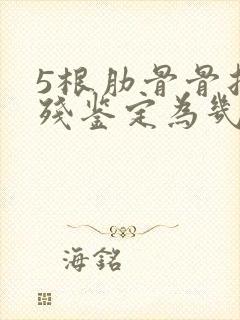 5根肋骨骨
残鉴定为几
海銘